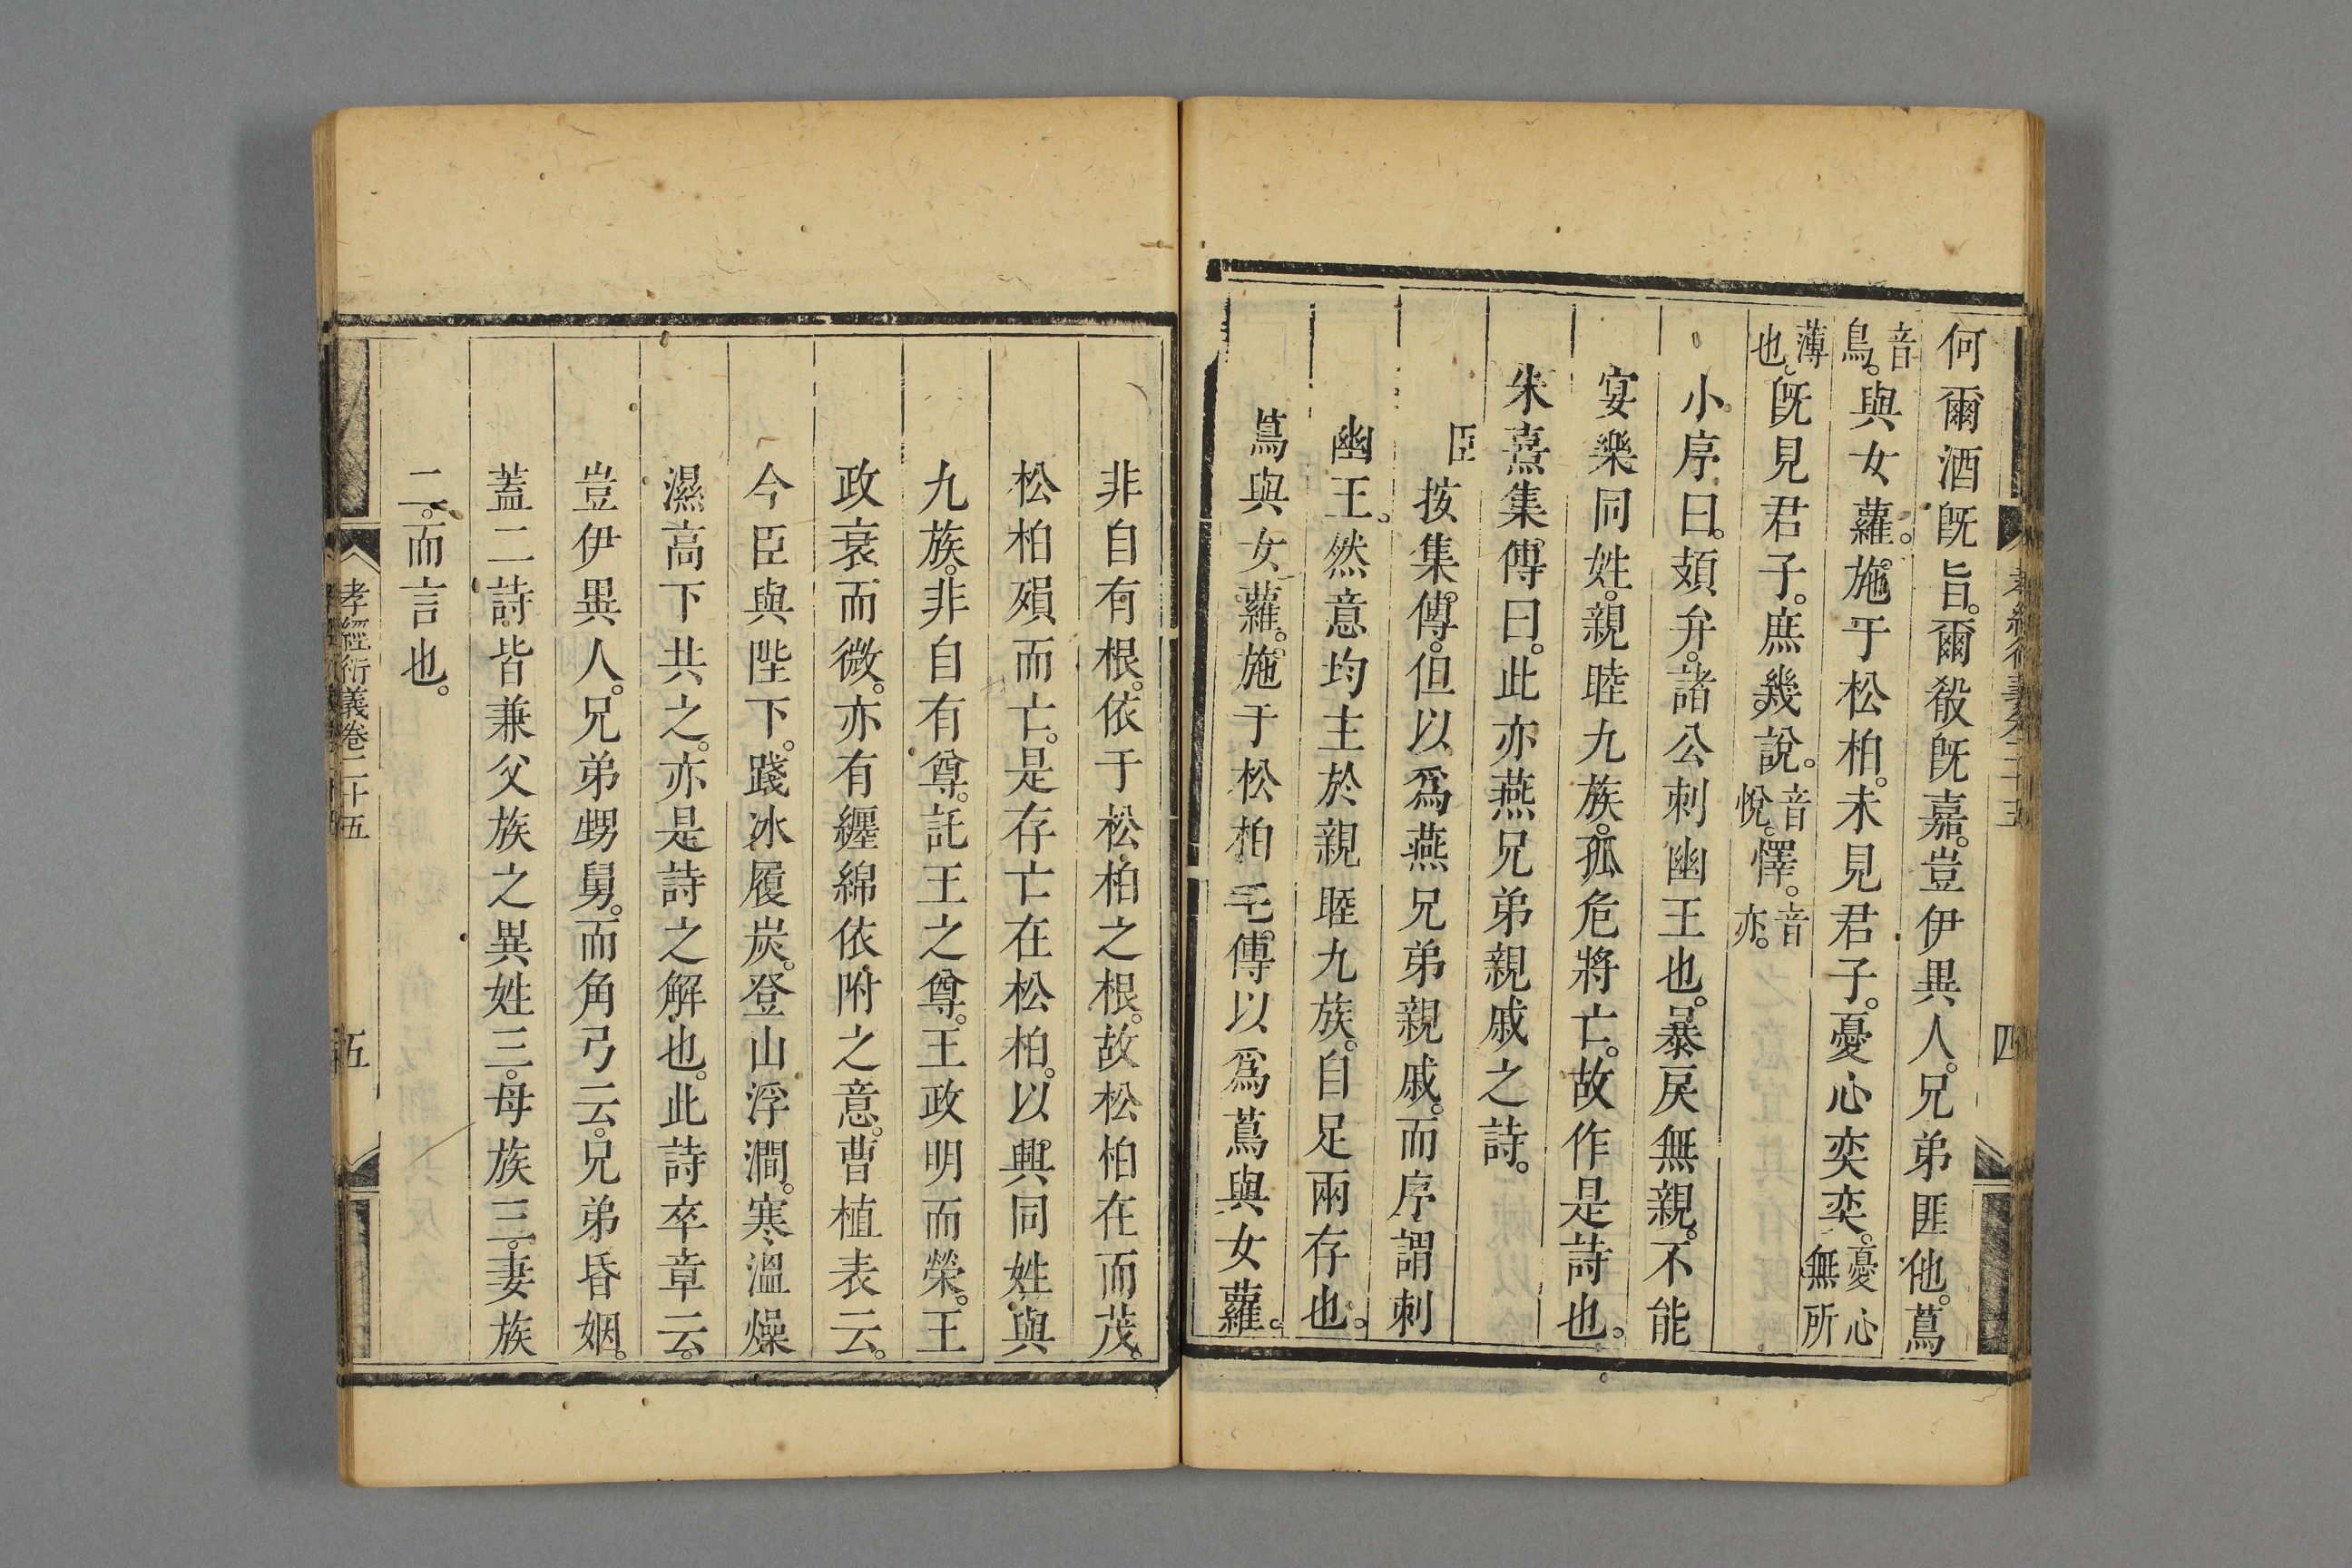 何爾酒旣旨。爾殽旣嘉。豈伊異人。兄弟匪他。蔦
音鳥。與女蘿。施于松柏。未見君子。憂心奕奕。憂心無所
薄也。旣見君子。庶幾說。音悅。懌。音亦。
小序曰。頍弁。諸公刺幽王也。暴戾無親。不能
宴樂同姓。親睦九族。孤危將亡。故作是詩也。
朱熹集傳曰。此亦燕兄弟親戚之詩。
臣按集傳。但以爲燕兄弟親戚。而序謂刺
幽王。然意均主於親睦九族。自足兩存也。
蔦與女蘿。施于松柏毛傳以爲蔦與女蘿。
孝經衍義卷二十五
四
非自有根。依于松柏之根。故松柏在而茂。
松柏殞而亡。是存亡在松柏。以興同姓與
九族。非自有尊。託王之尊。王政明而榮。王
政衰而微。亦有纏綿依附之意。曹植表云。
今臣與陛下。踐冰履炭。登山浮澗。寒溫燥
濕高下共之。亦是詩之解也。此詩卒章云。
豈伊異人。兄弟甥舅。而角弓云。兄弟昏姻。
蓋二詩。皆兼父族之異姓三。母族三。妻族
二。而言也。
孝經衍義卷二十五
五